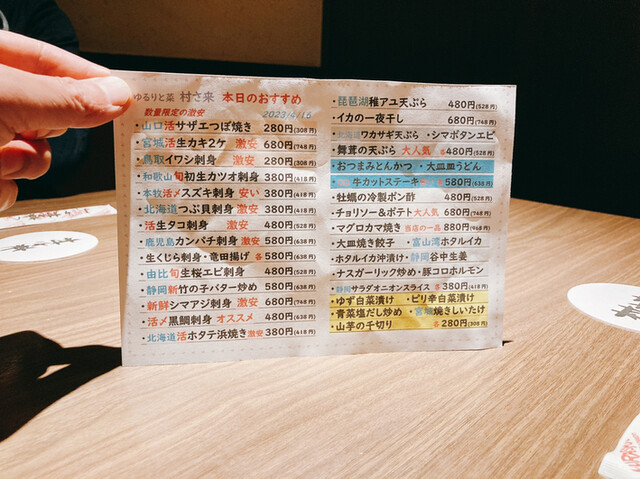 ゆるりと菜 村さ来 本日のおすすめ
数量限定の激安 2023/4/15
・山口活サザエつぼ焼き 280円(308円)
・宮城活生カキ2ケ 激安 680円(748円)
・鳥取イワシ刺身 激安 280円(308円)
・和歌山旬初生カツオ刺身 380円(418円)
・本牧活〆スズキ刺身 安い 380円(418円)
・北海道つぶ貝刺身 激安 380円(418円)
・活生タコ刺身 激安 380円(418円)
・鹿児島カンパチ刺身 激安 580円(638円)
・生くじら刺身・竜田揚げ 各580円(638円)
・由比旬生桜エビ刺身 480円(528円)
・静岡新竹の子バター炒め 580円(638円)
・新鮮シマアジ刺身 激安 680円(748円)
・活〆黒鯛刺身 オススメ 480円(528円)
・北海道活ホタテ浜焼き激安380円(418円)
・琵琶湖稚アユ天ぷら 480円(528円)
・イカの一夜干し 680円(748円)
・北海道ワカサギ天ぷら ・シマボタンエビ
・舞茸の天ぷら 大人気 各480円(528円)
・おつまみとんかつ ・大皿皿うどん
・牛カットステーキ 各580円(638円)
・牡蠣の冷製ポン酢 480円(528円)
・チョリソー&ポテト大人気 680円(748円)
・マグロカマ焼き 当店の一品 880円(968円)
・大皿焼き餃子 ・富山湾ホタルイカ
・ホタルイカ沖漬け・静岡谷中生姜
・ナスガーリック炒め・豚コロホルモン
・静岡サラダオニオンスライス 各380円(418円)
・ゆず白菜漬け ・ピリ辛白菜漬け
・青菜塩だし炒め ・宮城焼きしいたけ
・山芋の千切り 各280円(308円)